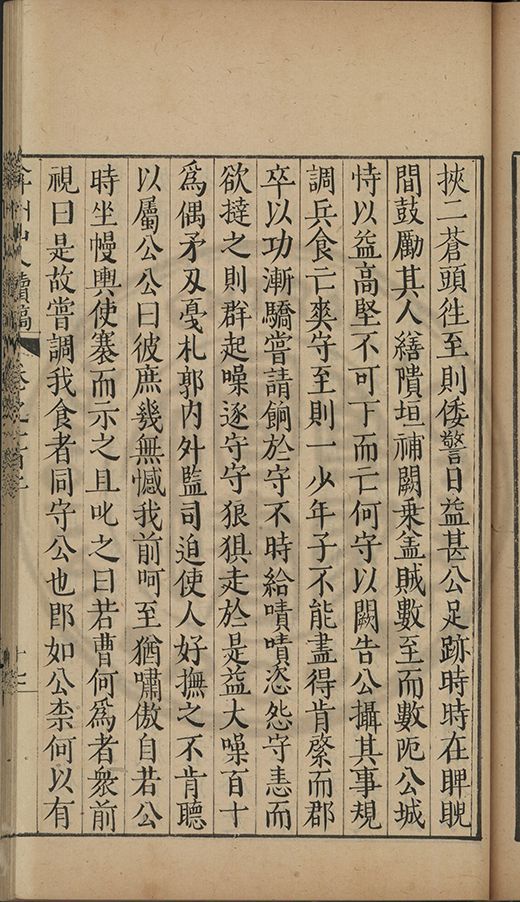 挾二蒼頭徃至則倭警日益甚公足跡時時在睥睨
間鼓勵其人繕隤垣補闕乗盖賊數至而數阨公城
恃以益高堅不可下而亡何守以闕告公攝其事規
調兵食亡爽守至則一少年子不能盡得肯綮而郡
卒以功漸驕嘗請餉於守不時給嘖嘖恣怨守恚而
欲撻之則群起噪逐守守狠狽走於是益大噪百十
爲偶矛刄戞札郭內外監司迫使人好撫之不肯聽
以屬公公曰彼庶幾無憾我前呵至猶嘯傲自若公
時坐幔輿使褰而示之且叱之曰若曹何爲者衆前
視曰是故嘗調我食者同守公也卽如公柰何以有
續稿